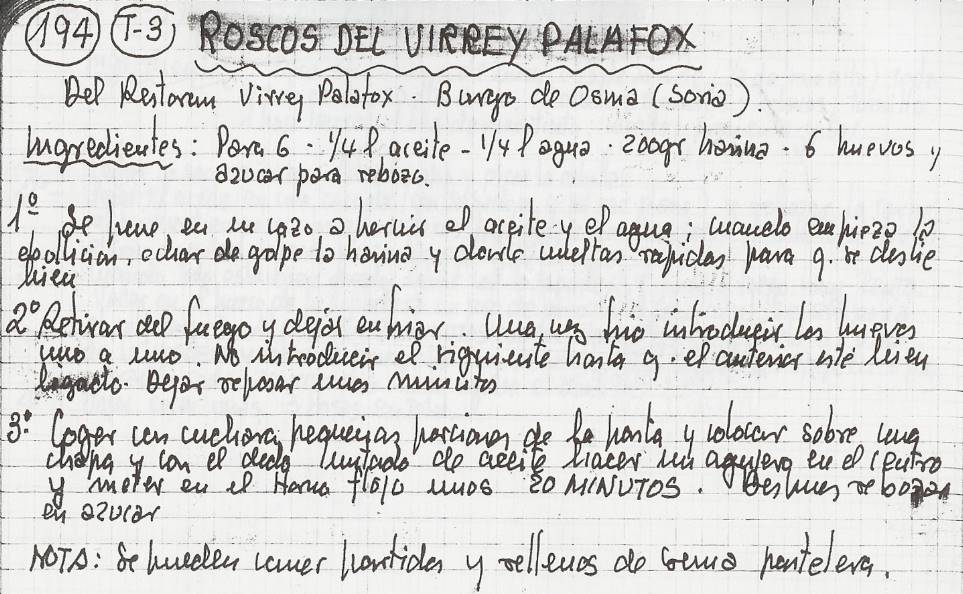 194 T-3 ROSCOS DEL VIRREY PALAFOX
Del Restoran Virrey Palafox. Burgo de Osma (Soria).
Ingredientes: Para 6 - 1/4 l aceite - 1/4 l agua - 200gr harina - 6 huevos y
azucar para rebozo.
1º Se pone en un cazo a hervir el aceite y el agua; cuando empieza la
ebollicion, echar de golpe la harina y darle vueltas rapidas para q. se deslie
bien
2º Retirar del fuego y dejar enfriar. Una vez frio introducir los huevos
uno a uno. No introducir el siguiente hasta q. el anterior esté bien
ligado. Dejar reposar unos minutos
3º Coger con cuchara, pequeñas porciones de la pasta y colocar sobre una
chapa y con el dedo untado de aceite hacer un agujero en el centro
y meter en el Horno flojo unos 20 MINUTOS. Despues rebozar
en azucar
NOTA: Se pueden comer partidos y rellenos de crema pastelera.